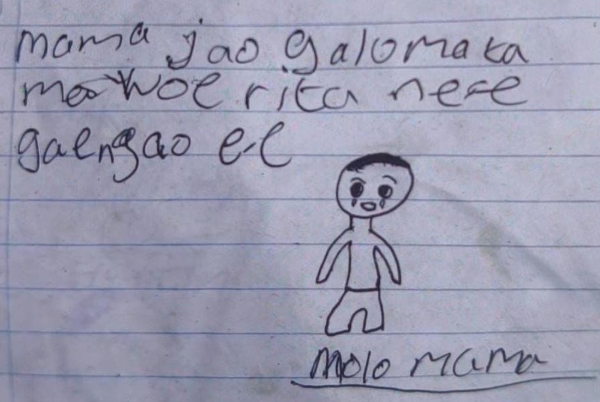 mama jao galomaka
mawoe rita nere
gaengao e-e
molo mama